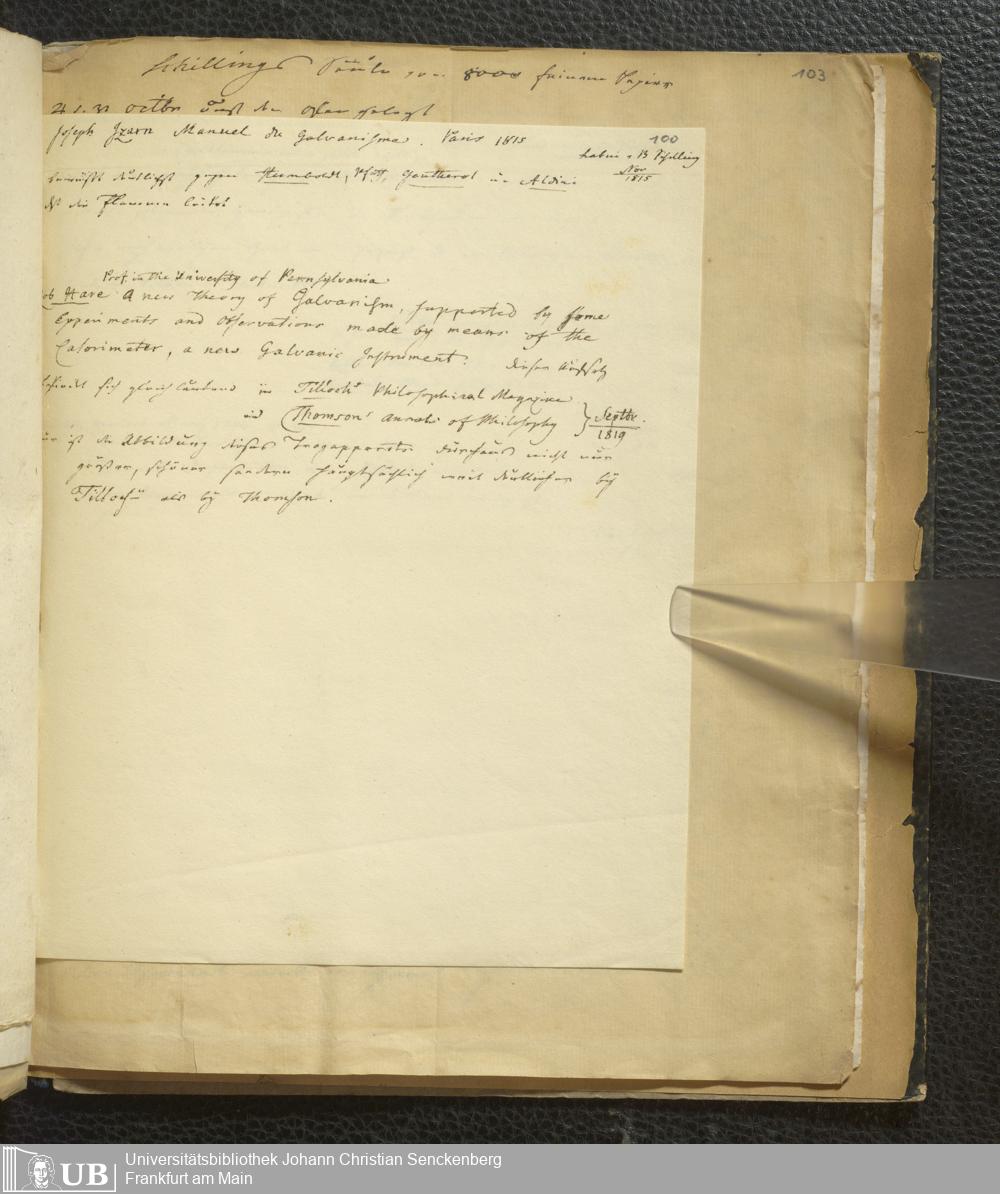 Schillings Säule von 8000 feinem Papier
103
31 octbr auf den Ofen gelegt
Joseph Izarn Manuel du Galvanisme. Paris 1815
100
habui v B Schilling
Nov
1815
gegen Humboldt, Pfaff, Gautherot u. Aldini
die Flamme leitet
Prof. in the University of Pennsylvania
Rob Hare A new Theory of Galvanism, supported by some
Experiments and Observations made by means of the
Calorimeter, a new Galvanic Instrument. Dieser Aufsatz
befindet sich gleichlautend in Tilloch's Philosophical Magazine
und Thomson's annals of Philosophy
Septbr.
1819
nur ist die Abbildung dieses Trogapparats durchaus nicht nur
größer, schöner sondern hauptsächlich weit deutlicher bey
Tilloch als bey Thomson.
UB
Universitätsbibliothek Johann Christian Senckenberg
Frankfurt am Main